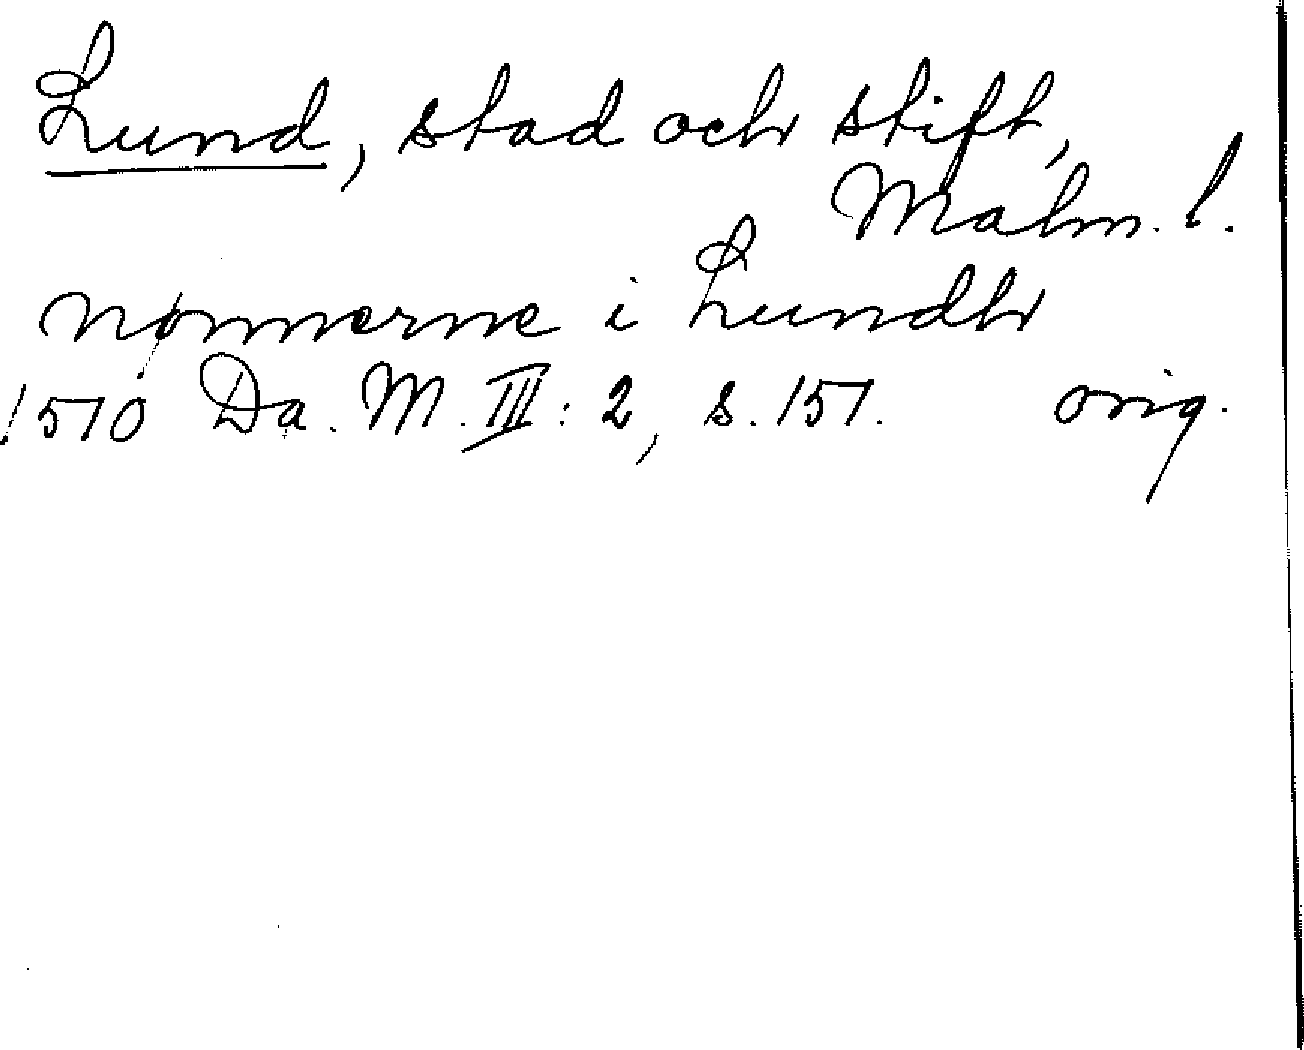 Lund, stad och stift,
Malm. l.
nønnerne i Lundh
1510 Da. M. III: 2, s. 151. orig.